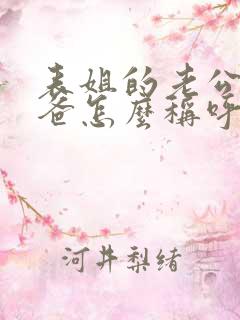 表姐的老公
爸怎麼稱呼
河井梨緒